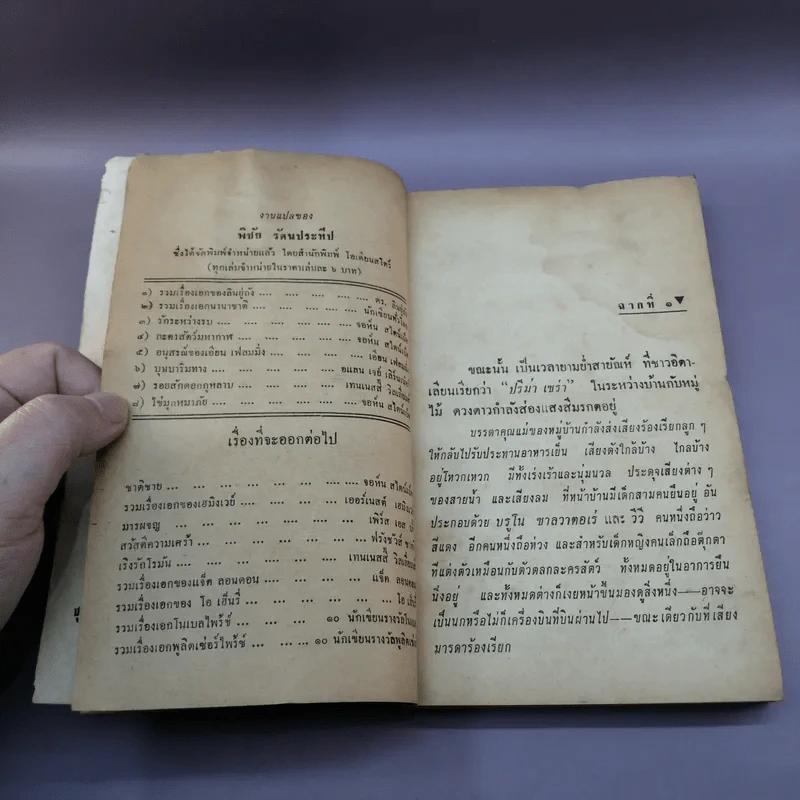 งานแปลของ
พิชัย รัตนประทีป
ซึ่งได้จัดพิมพ์จำหน่ายแล้ว โดยสำนักพิมพ์ โอเดียนสโตร์
(ทุกเล่มจำหน่ายในราคาเล่มละ ๖ บาท)
๑) รวมเรื่องเอกของลินยู่ถัง .... .... .... .... ดร. ลินยู่ถัง
๒) รวมเรื่องเอกนานาชาติ .... .... .... นักเขียนทั่วโลก
๓) รักระหว่างรบ .... .... .... .... จอห์น สไตน์เบ็ค
๔) ละครสัตว์มหากาฬ .... .... .... จอห์น
๕) อนุสรณ์ของเอียน เฟลมมิ่ง .... .... เอียน เฟลมมิ่ง
๖) บุษบาริมทาง .... .... .... แอลเลน เจย์
๗) รอยสักดอกกุหลาบ .... .... .... เทนเนสสี วิลเลียมส์
๘) ไข่มุกหมาภัย .... .... .... .... จอห์น สไตน์เบ็ค
เรื่องที่จะออกต่อไป
ชาติชาย ... ... ... ... ... ... จอห์น สไตน์เบ็ค
รวมเรื่องเอกของเฮมิงเวย์ ... ... ... เออร์เนสต์ เฮมิงเวย์
มารผจญ ... ... ... ... ... ... เพิร์ส เอส
สวัสดีความเศร้า ... ... ... ... ฟรังซัวส์
เริงรักโรมัน ... ... ... ... เทนเนสสี วิลเลียมส์
รวมเรื่องเอกของแจ็ค ลอนดอน ... ... ... แจ็ค ลอนดอน
รวมเรื่องเอกของ โอ เฮ็นรี่ ... ... ... ... โอ เฮ็นรี่
รวมเรื่องเอกโนเบลไพร้ซ์ ... ... ... ๑๐ นักเขียนรางวัลโนเบล
รวมเรื่องเอกพูลิตเซ่อร์ไพร้ซ์ ... ... ... ๑๐ นักเขียนรางวัลพูลิตเซ่อร์
ฉากที่ ๑
ขณะนั้น เป็นเวลายามย่ำสายัณห์ ที่ชาวอิตา-
เลียนเรียกว่า “ปรีม่า เซร่า” ในระหว่างบ้านกับหมู่
ไม้ ดวงดาวกำลังส่องแสงสีมรกตอยู่
บรรดาคุณแม่ของหมู่บ้านกำลังส่งเสียงร้องเรียกลูก ๆ
ให้กลับไปรับประทานอาหารเย็น เสียงดังใกล้บ้าง ไกลบ้าง
อยู่โหวกเหวก มีทั้งเร่งเร้าและนุ่มนวล ประดุจเสียงต่าง ๆ
ของสายน้ำ และเสียงลม ที่หน้าบ้านมีเด็กสามคนยืนอยู่ อัน
ประกอบด้วย บรูโน ซาลวาตอเร่ และ วีวี คนหนึ่งถือว่าว
สีแดง อีกคนหนึ่งถือห่วง และสำหรับเด็กหญิงคนเล็กถือตุ๊กตา
ที่แต่งตัวเหมือนกับตัวตลกละครสัตว์ ทั้งหมดอยู่ในอาการยืน
นิ่งอยู่ และทั้งหมดต่างก็เงยหน้าขึ้นมองดูสิ่งหนึ่ง——อาจจะ
เป็นนกหรือไม่ก็เครื่องบินที่บินผ่านไป——ขณะเดียวกับที่เสียง
มารดาร้องเรียก